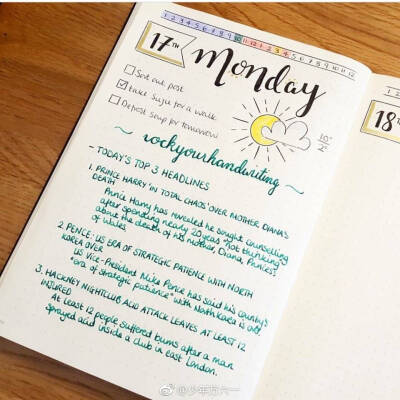 1 2 3 4 5 6 7 8 9 10 11 12 1 2 3 4 5 6 7 8 9 10 11 12
17TH
Monday
Sort out post
Take Suju for a walk
Defrost soup for tomorrow
rockyourhandwriting
- TODAY'S TOP 3 HEADLINES
1. PRINCE HARRY 'IN TOTAL CHAOS' OVER MOTHER DIANA'S
DEATH
Prince Harry has revealed he sought counselling
after spending nearly 20 years "not thinking"
about the death of his mother, Diana, Princess
of Wales
2. PENCE: US ERA OF STRATEGIC PATIENCE WITH NORTH
KOREA OVER
US Vice-President Mike Pence has said his country's
"era of strategic patience" with North Korea is over
3. HACKNEY NIGHTCLUB ACID ATTACK LEAVES AT LEAST 12
INJURED
At least 12 people suffered burns after a man
sprayed acid inside a club in east London.
18TH